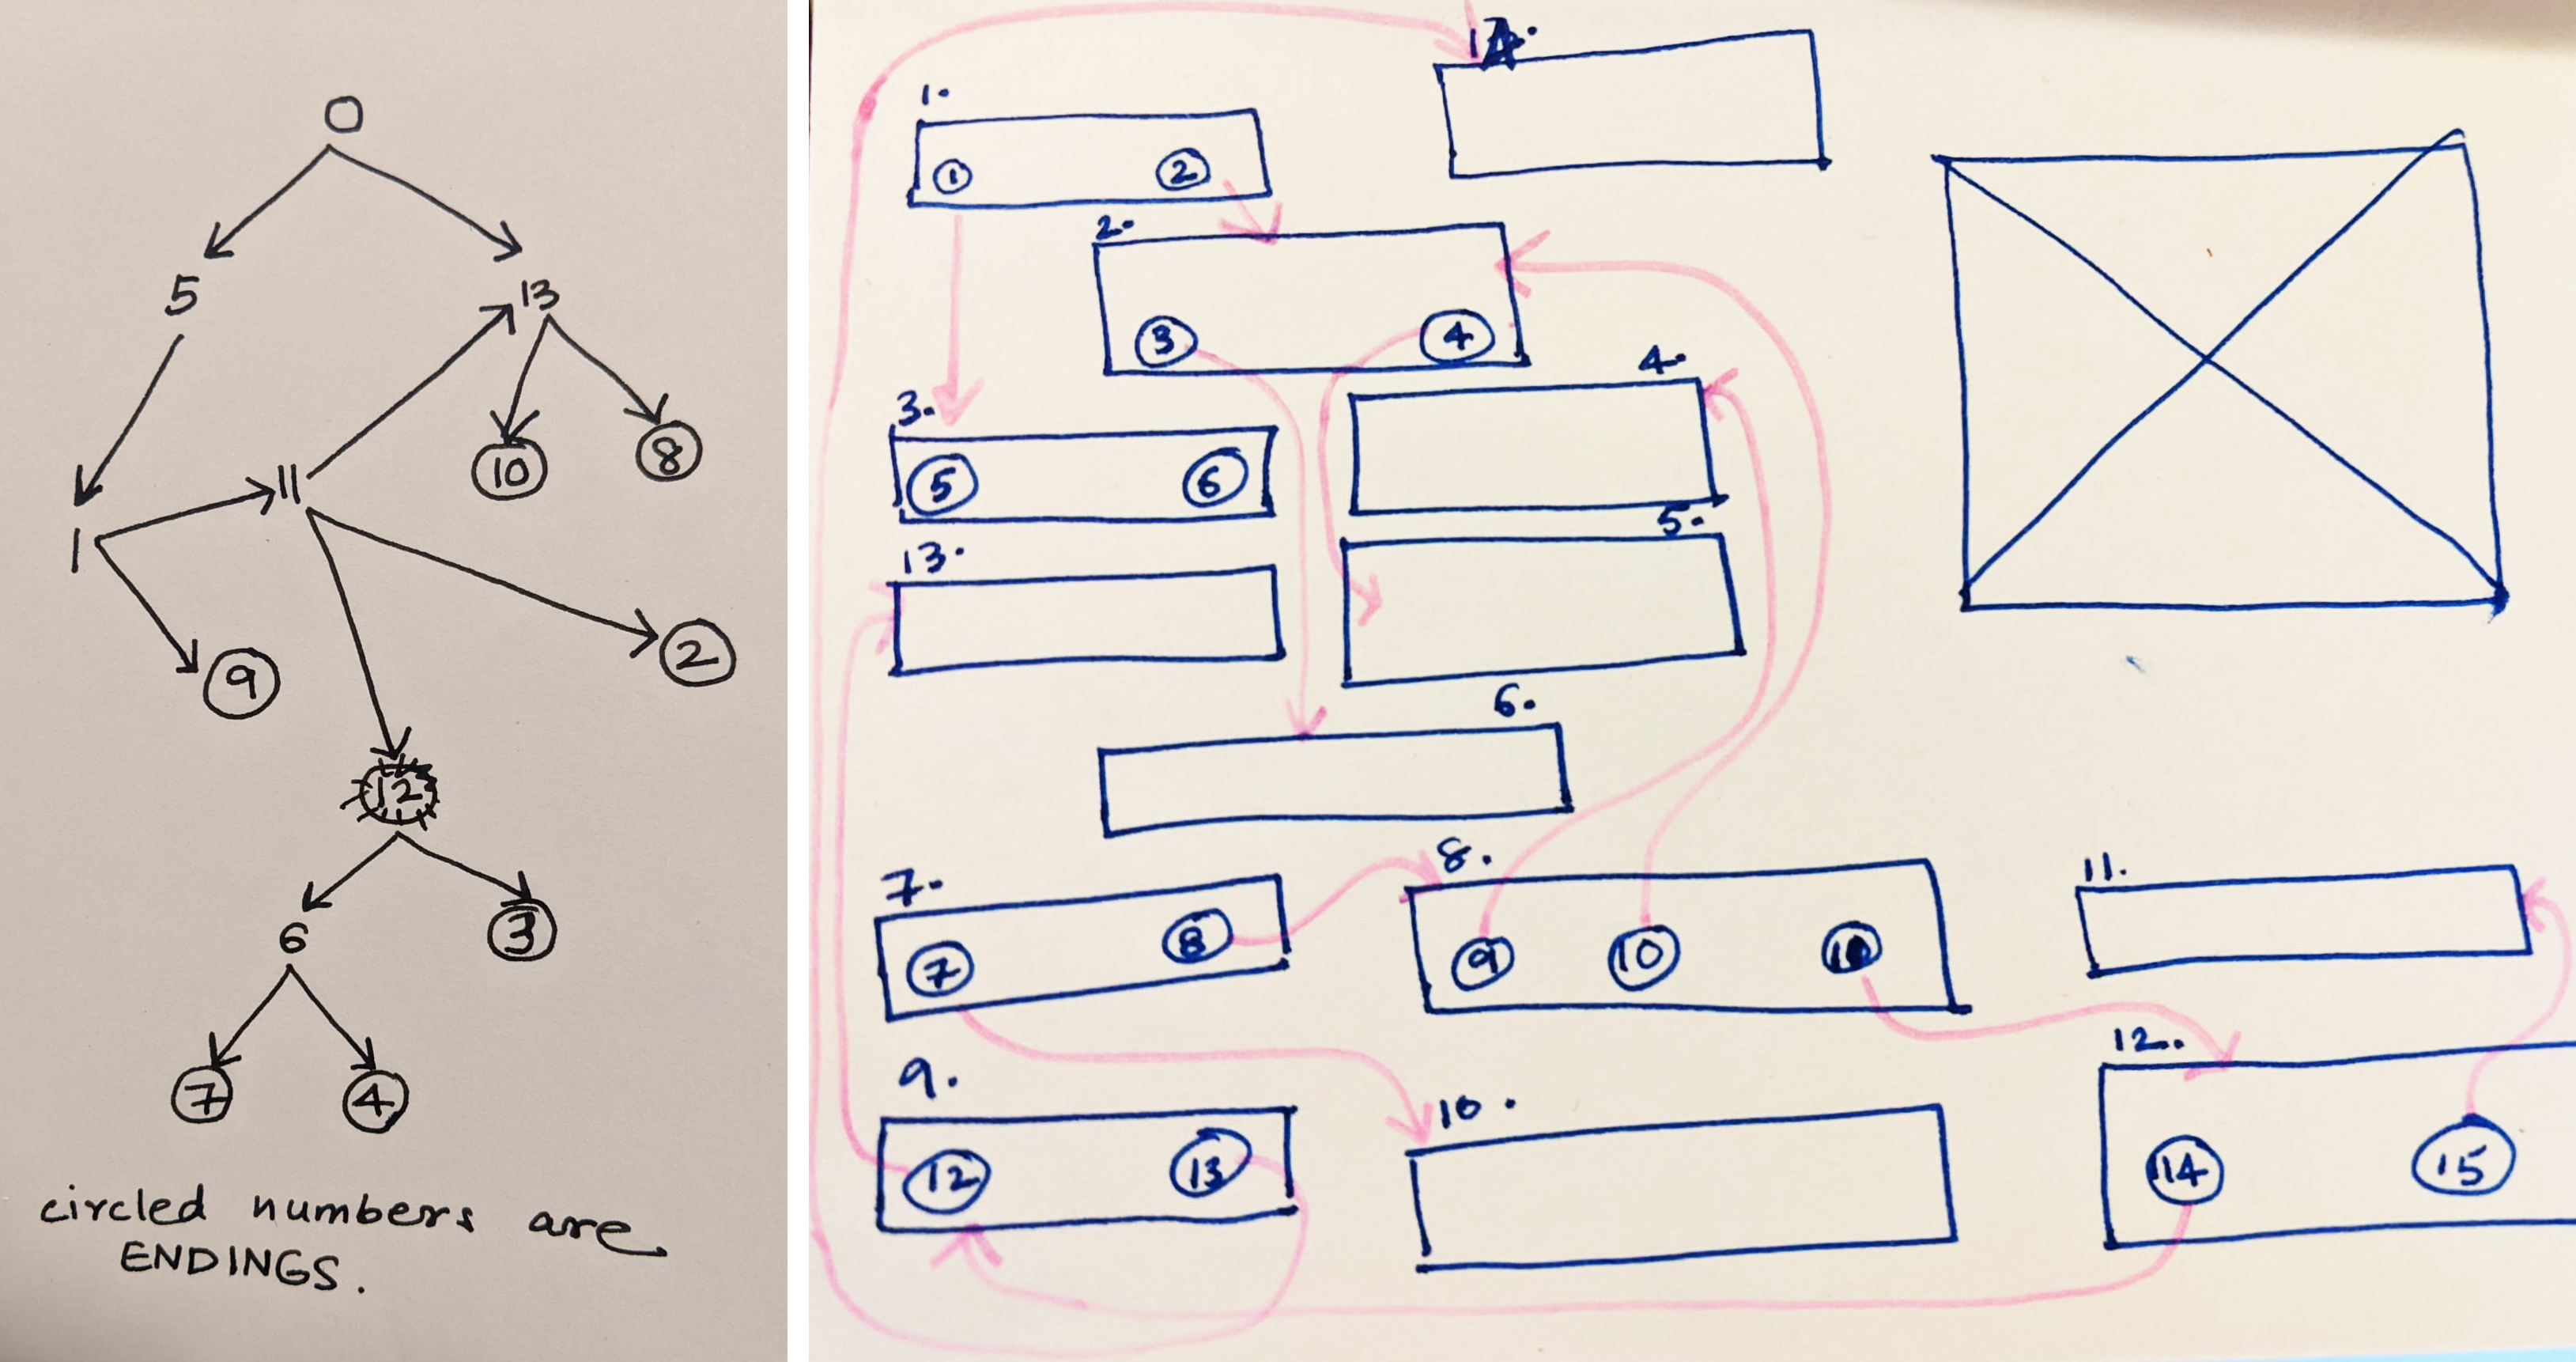 0
5
13
10
8
11
1
9
2
12
6
3
7
4
circled numbers are
ENDINGS.
1.
1
2
2.
3
4
3.
5
6
4.
13.
5.
6.
7.
7
8
8.
9
10
11.
9.
12
13
10.
12.
14
15